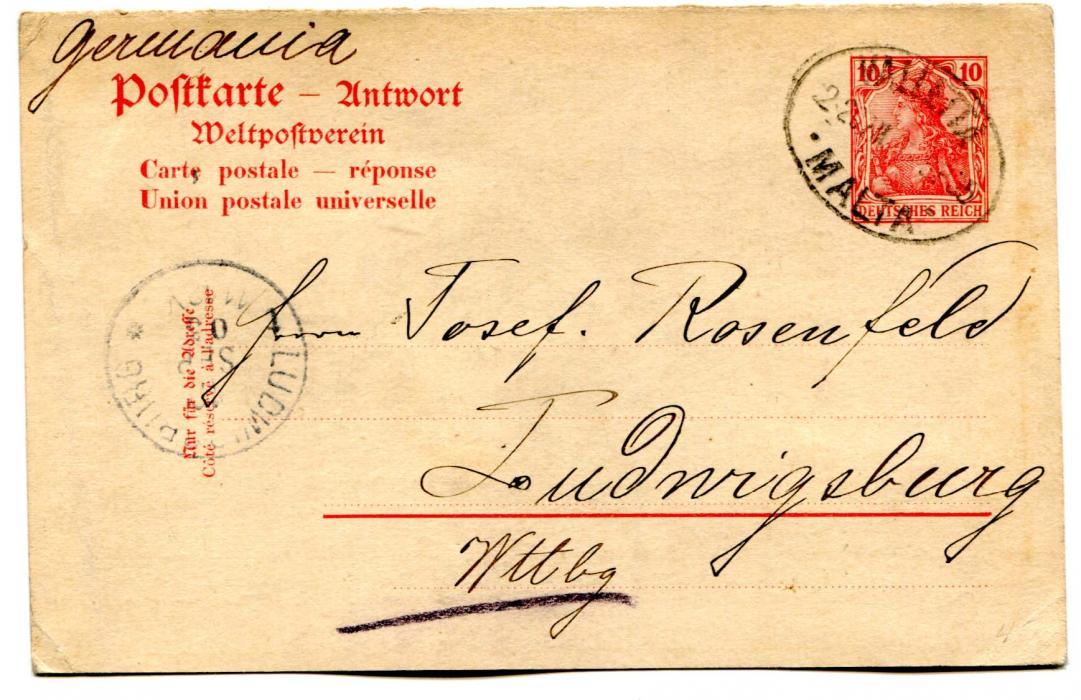 Germania
Postkarte – Antwort
Weltpostverein
Carte postale — réponse
Union postale universelle
10 10
DEUTSCHES REICH
MALTA
Nur für die Adresse
Côté réservé à l'adresse
Herrn Josef. Rosenfeld
Ludwigsburg
Wttbg